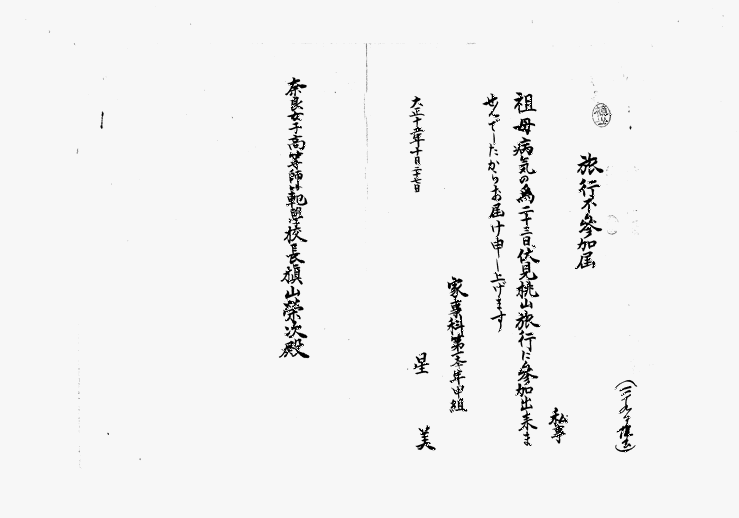 旅行不參加届
私事
祖母病気の為二十三日伏見桃山旅行に參加出来ま
せんでしたからお届け申し上げます
家事科第一年甲組
大正十五年十月二十七日
星 美
奈良女子高等師範學校長槇山榮次殿